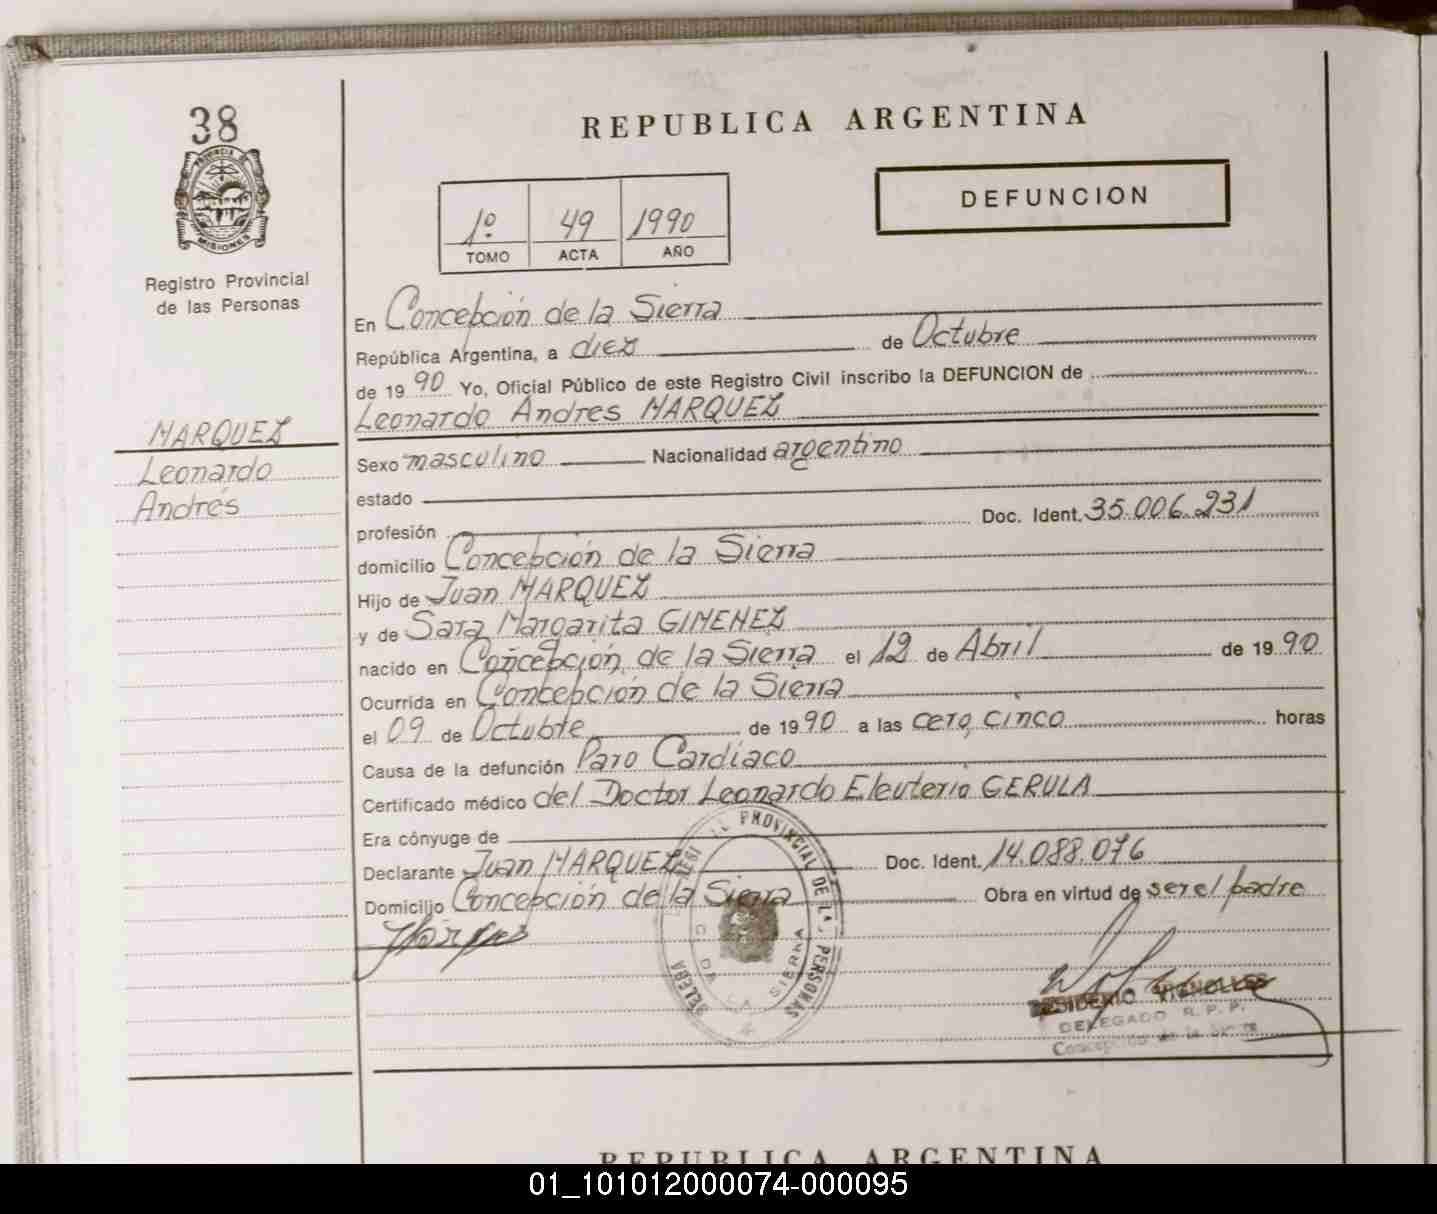 38
PROVINCIA DE
MISIONES
Registro Provincial
de las Personas
REPUBLICA ARGENTINA
DEFUNCION
1º 49 1990
TOMO ACTA AÑO
En Concepción de la Sierra
República Argentina, a diez de Octubre
de 1990 Yo, Oficial Público de este Registro Civil inscribo la DEFUNCION de
Leonardo Andres MARQUEZ
MARQUEZ
Leonardo
Andrés
Sexo masculino Nacionalidad argentino
estado
profesión Doc. Ident. 35.006.231
domicilio Concepción de la Sierra
Hijo de Juan MARQUEZ
y de Sara Margarita GIMENEZ
nacido en Concepción de la Sierra el 12 de Abril de 1990
Ocurrida en Concepción de la Sierra
el 09 de Octubre de 1990 a las cero, cinco horas
Causa de la defunción Paro Cardíaco
Certificado médico del Doctor Leonardo Eleuterio GERULA
Era cónyuge de
Declarante Juan MARQUEZ Doc. Ident. 14.088.076
Domicilio Concepción de la Sierra Obra en virtud de ser el padre
PROVINCIAL DE LAS PERSONAS
DE LA SIERRA
DELEGADO R. P. P.
Concepción de la Sierra
REPUBLICA ARGENTINA
01_101012000074-000095